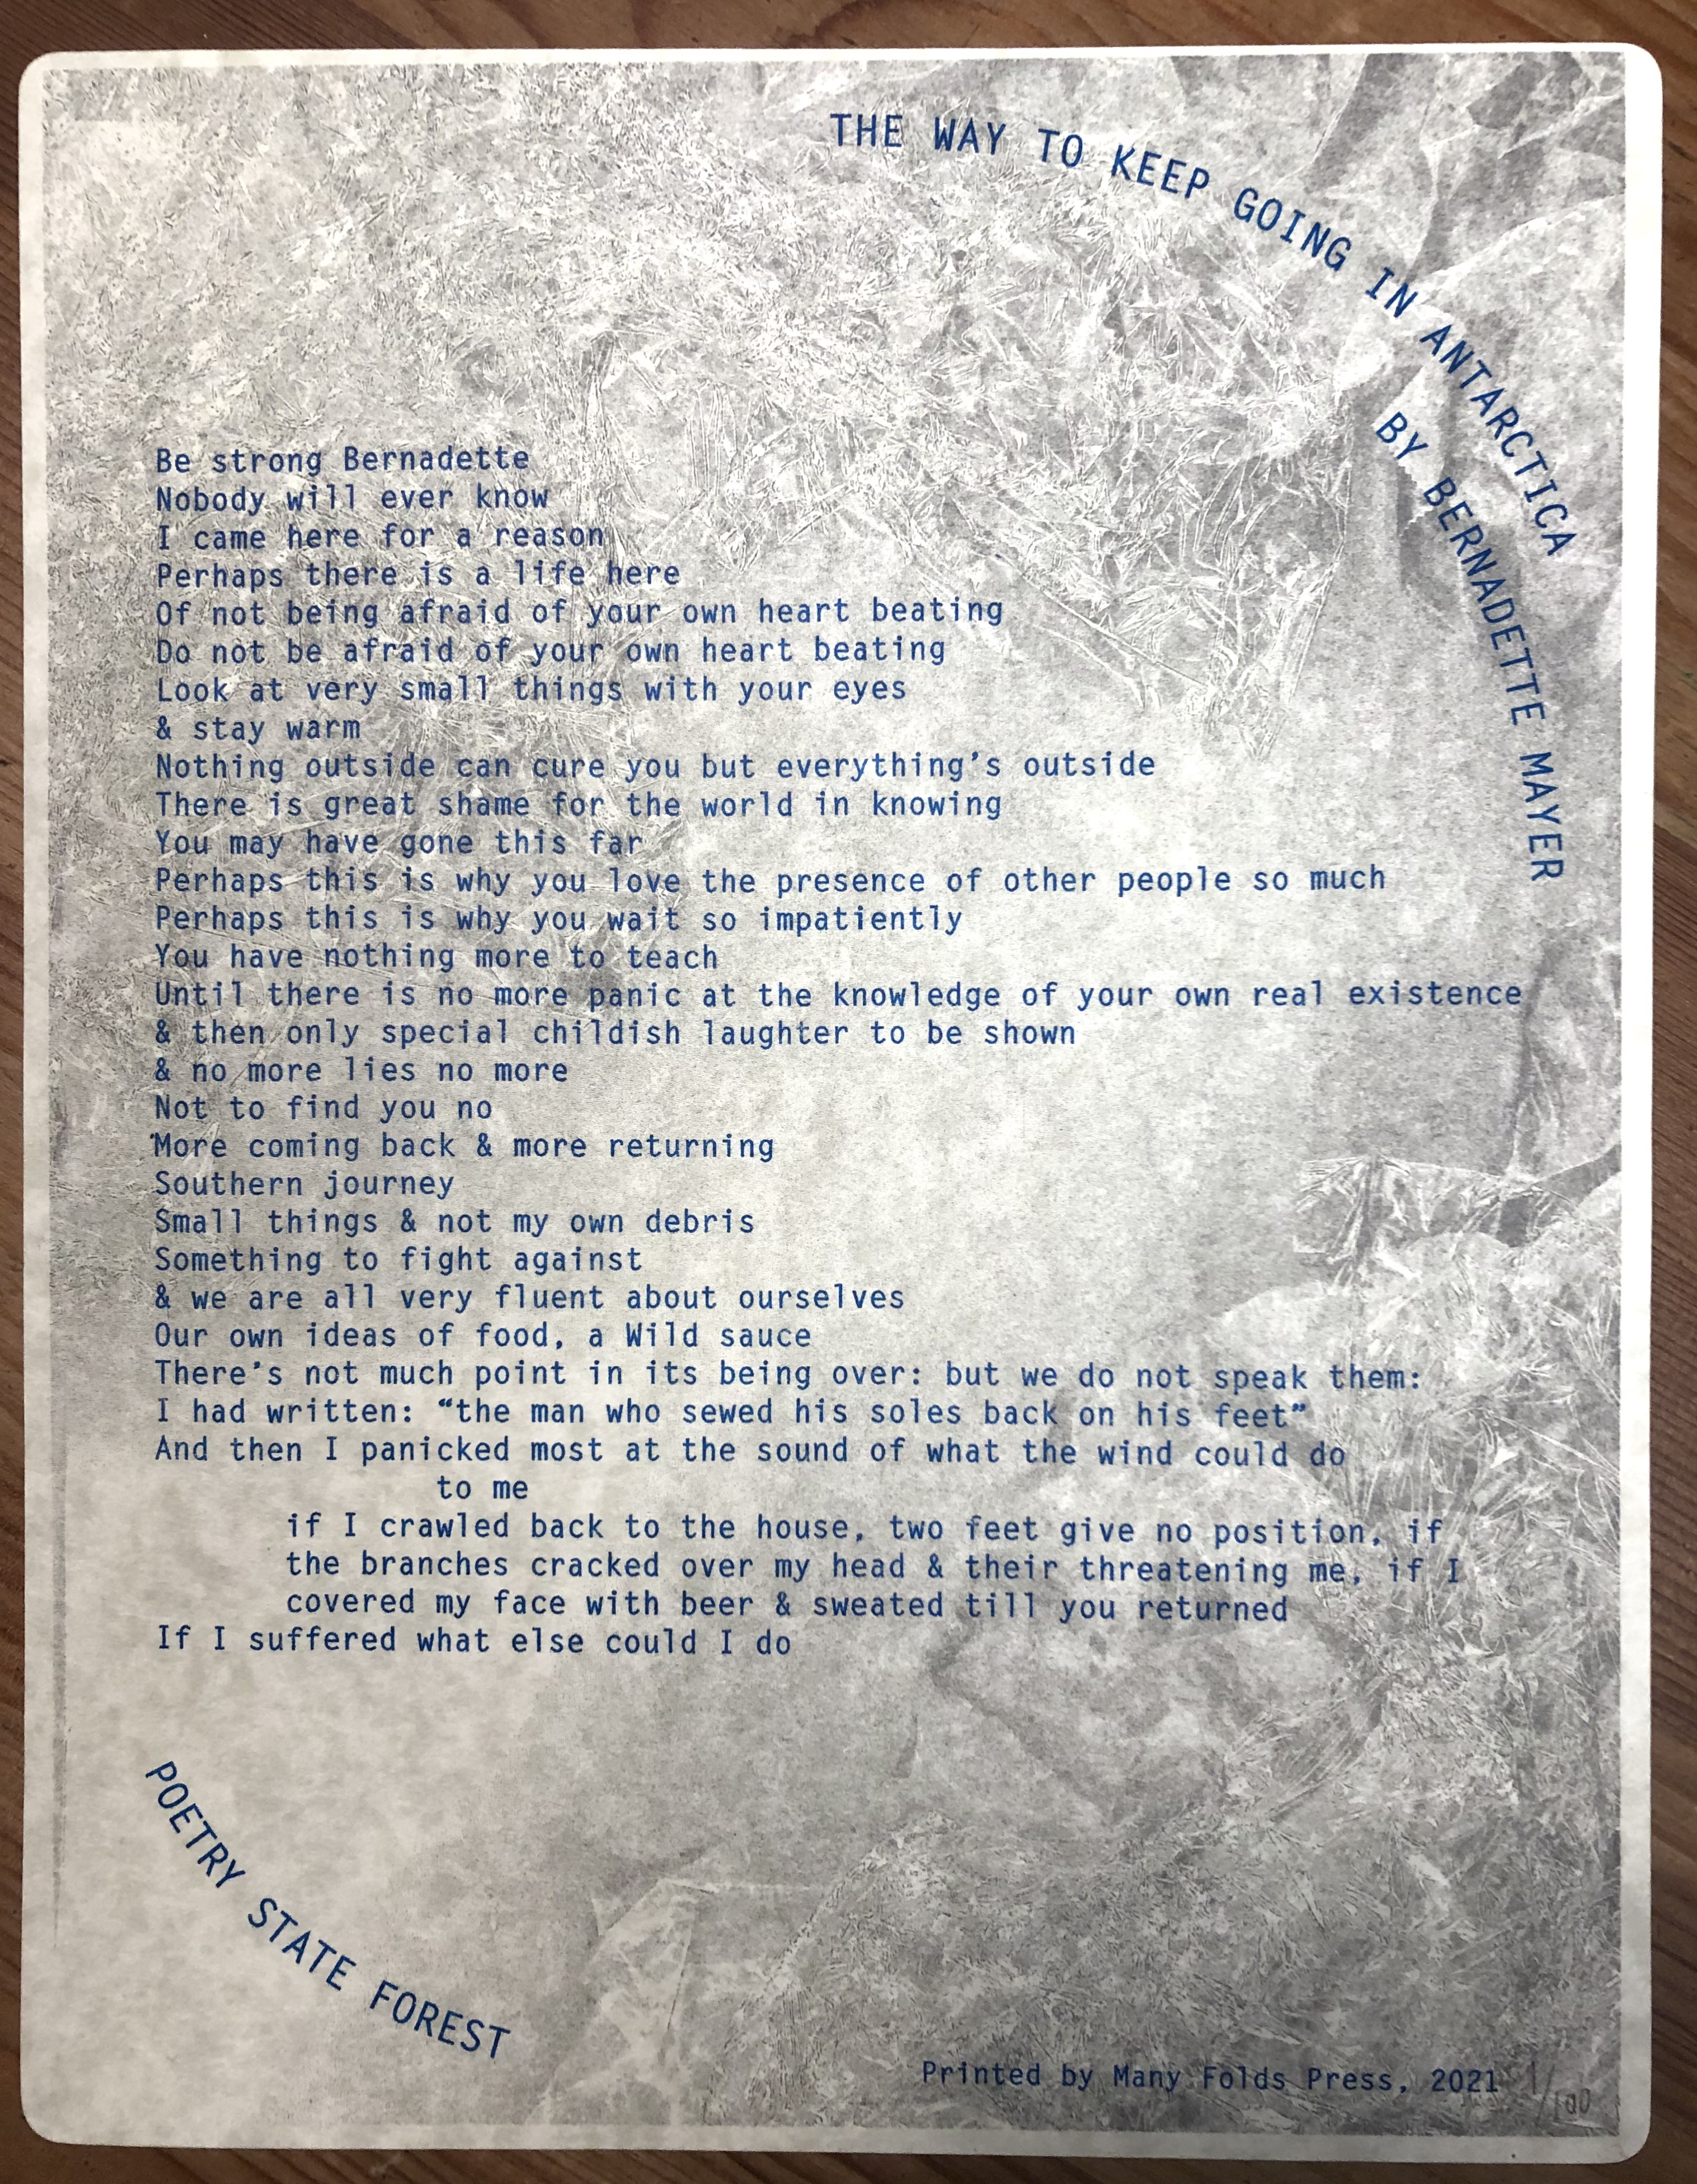 THE WAY TO KEEP GOING IN ANTARCTICA
BY BERNADETTE MAYER
Be strong Bernadette
Nobody will ever know
I came here for a reason
Perhaps there is a life here
Of not being afraid of your own heart beating
Do not be afraid of your own heart beating
Look at very small things with your eyes
& stay warm
Nothing outside can cure you but everything’s outside
There is great shame for the world in knowing
You may have gone this far
Perhaps this is why you love the presence of other people so much
Perhaps this is why you wait so impatiently
You have nothing more to teach
Until there is no more panic at the knowledge of your own real existence
& then only special childish laughter to be shown
& no more lies no more
Not to find you no
More coming back & more returning
Southern journey
Small things & not my own debris
Something to fight against
& we are all very fluent about ourselves
Our own ideas of food, a Wild sauce
There’s not much point in its being over: but we do not speak them:
I had written: “the man who sewed his soles back on his feet”
And then I panicked most at the sound of what the wind could do
to me
if I crawled back to the house, two feet give no position, if
the branches cracked over my head & their threatening me, if I
covered my face with beer & sweated till you returned
If I suffered what else could I do
POETRY STATE FOREST
Printed by Many Folds Press, 2021 1/100